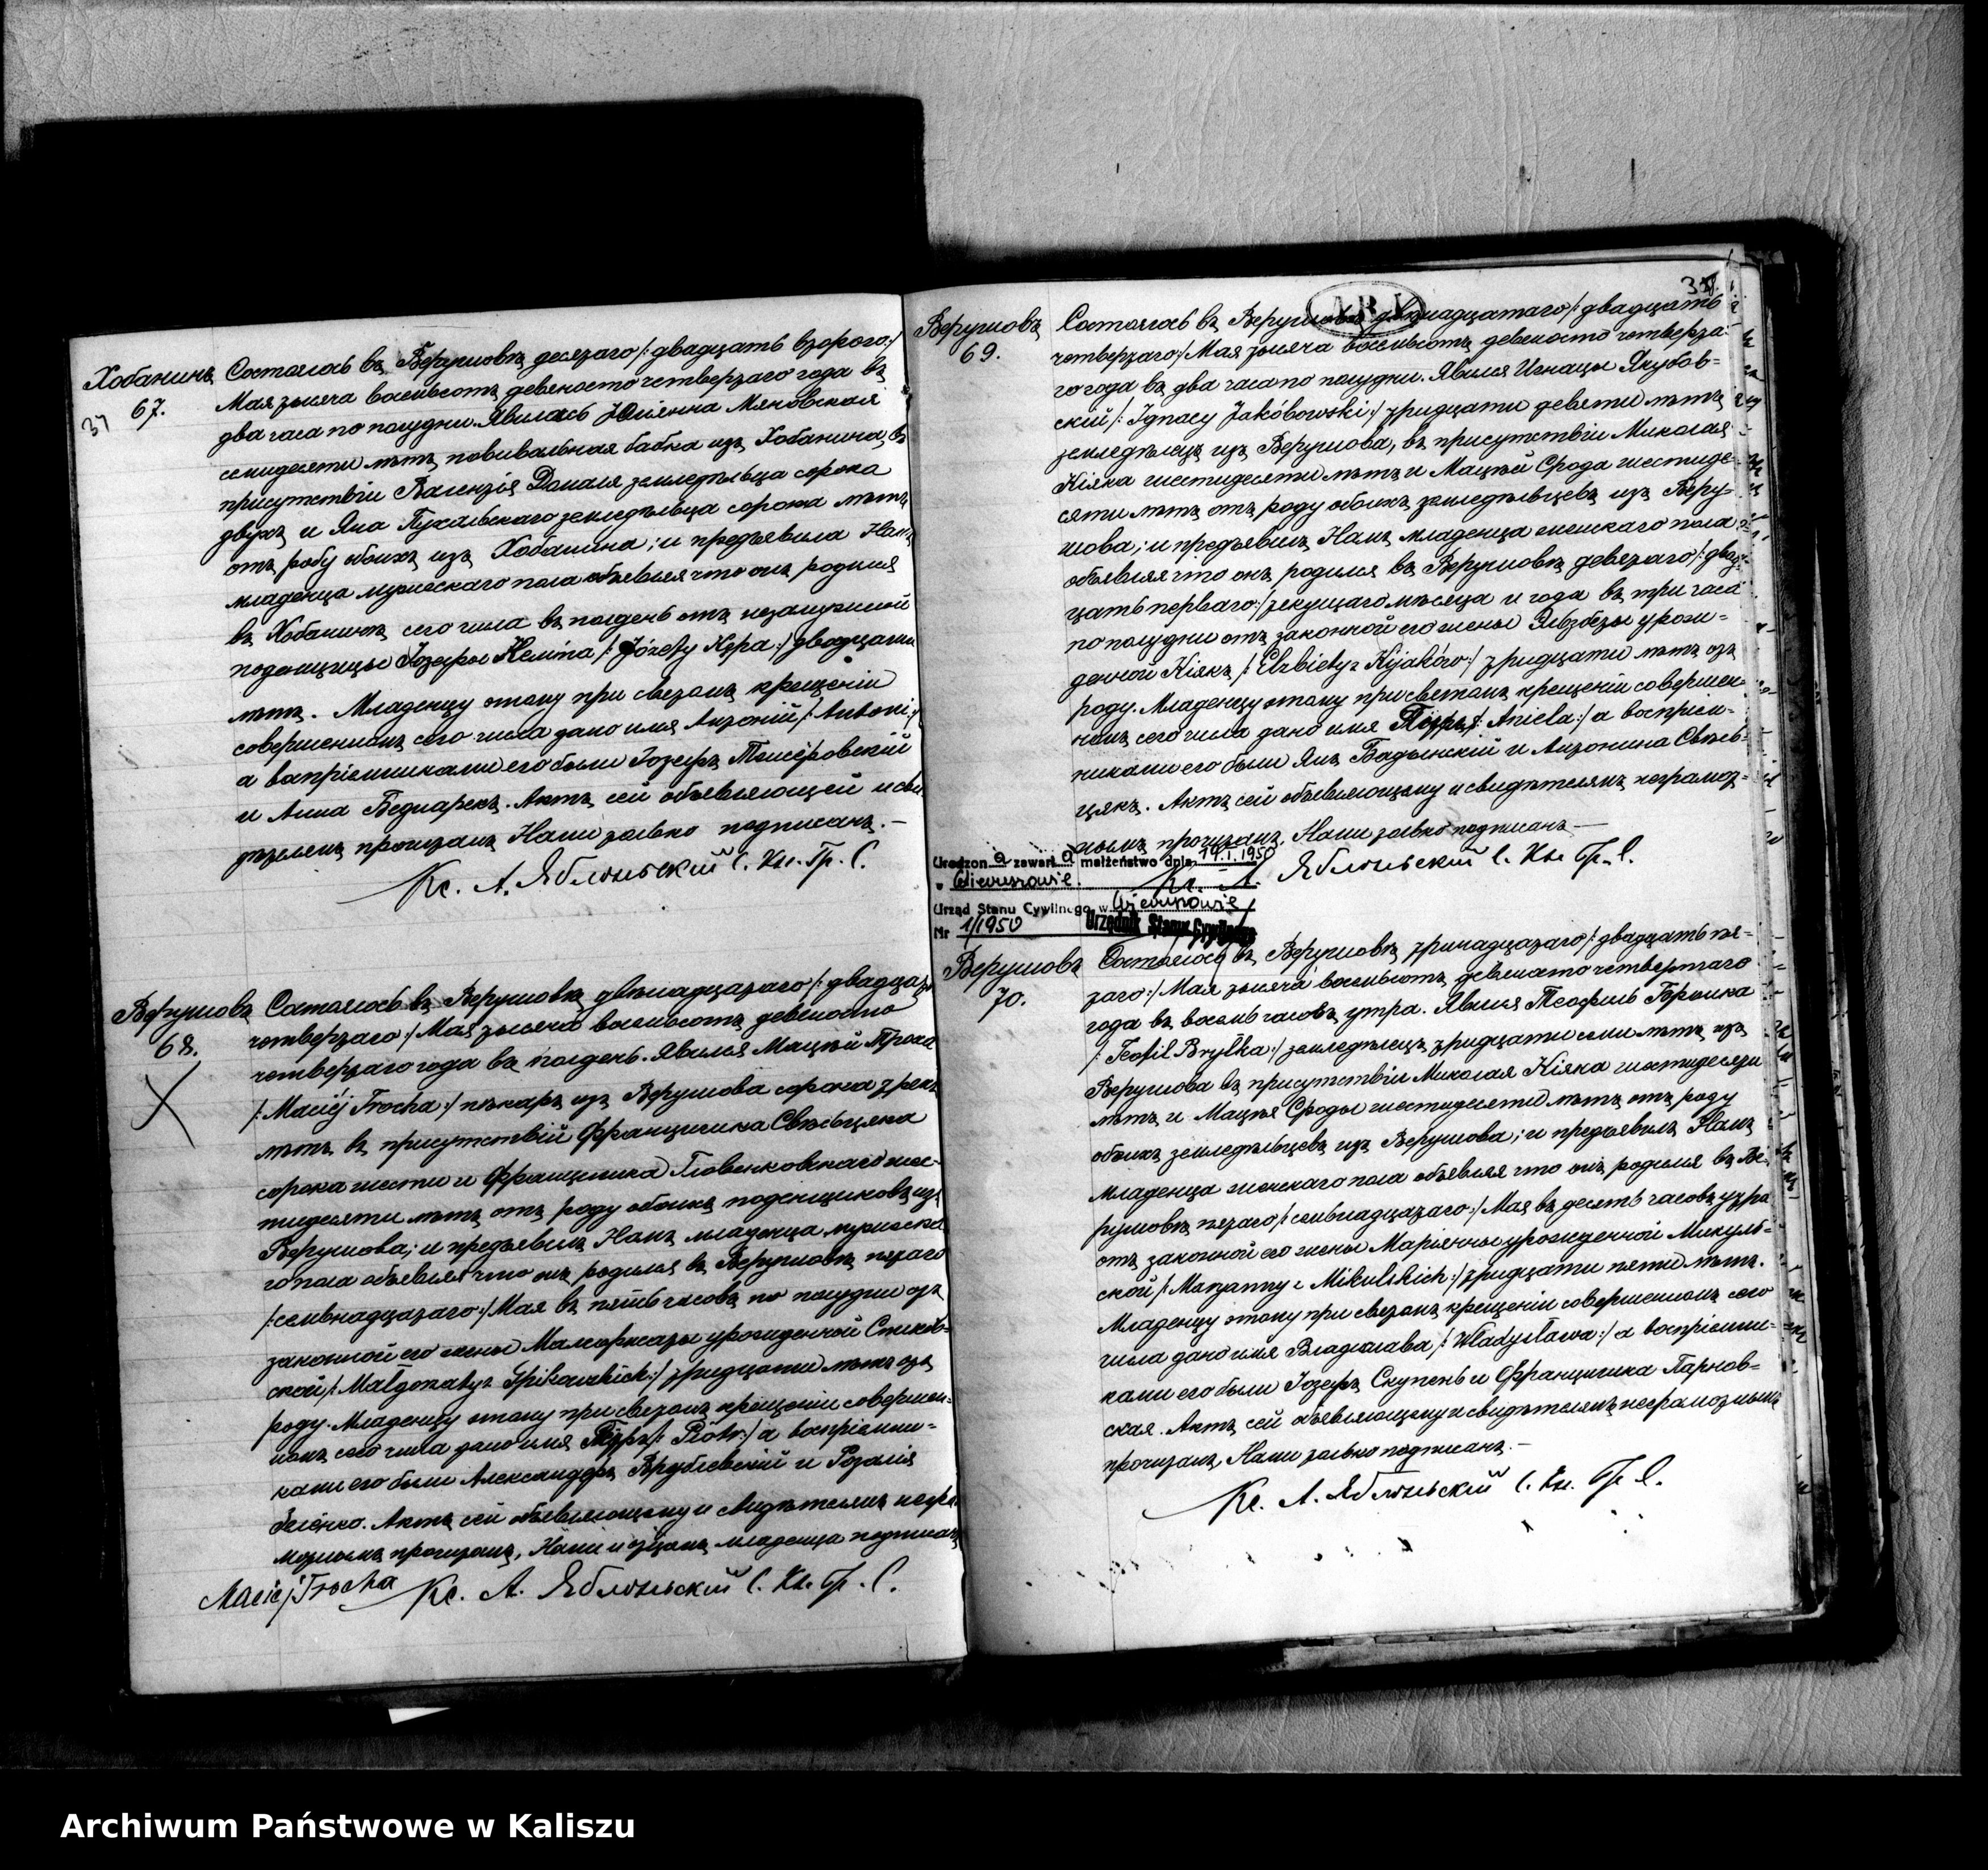 Хобанинъ
67.
37
Состоялось въ Верушовѣ десятаго /: двадцать второго :/
Мая тысяча восемьсотъ девяносто четвертаго года въ
два часа по полудни. Явилась Юлiянна Мяновская
семидесяти лѣтъ повивальная бабка изъ Хобанина, въ
присутствiи Валентiя Доналя земледѣльца сорока
двухъ и Яна Пухальскаго земледѣльца сорока лѣтъ
отъ роду обоихъ изъ Хобанина; и предъявила Намъ
младенца мужескаго пола объявляя что онъ родился
въ Хобанинѣ сего числа въ полдень отъ незамужной
поденщицы Iозефы /: Józefy Kępa :/ двадцати
лѣтъ. Младенцу этому при святомъ крещенiи
совершенномъ сего числа дано имя Антонiй /: Antoni :/
а воспрiемниками его были Iозефъ
и Анна Беднарекъ. Актъ сей объявляющей и сви
дѣтелямъ прочитанъ Нами только подписанъ. —
Кс. А. Яблоньскiй С. Кн. Гр. С.
Верушовъ
68.
Состоялось въ Верушовѣ двѣнадцатаго /: двадцать
четвертаго :/ Мая тысяча восемьсотъ девяносто
четвертаго года въ полдень. Явился Мацѣй Троха
/: Maciéj Trocha :/ пекарь изъ Верушова сорока трехъ
лѣтъ въ присутствiи Францишка Свѣсьцяка
сорока шести и Францишка Гловенковскаго шес-
тидесяти лѣтъ отъ роду обоихъ поденщиковъ изъ
Верушова; и предъявилъ Намъ младенца мужеска
го пола объявляя что онъ родился въ Верушовѣ пятаго
/: семьнадцатаго :/ Мая въ пять часовъ по полудни отъ
законной его жены Малгоржаты урожденной Спиков-
ской /: Małgorzaty z Spikowskich :/ тридцати лѣтъ отъ
роду. Младенцу этому при святомъ крещенiи совершен-
номъ сего числа дано имя Петръ /: Piotr :/ а воспрiемни-
ками его были Александръ Врублевскiй и Розалiя
Актъ сей объявляющему и свидѣтелямъ негра
мотнымъ прочитанъ, Нами и отцемъ младенца подписанъ
Maciej Trocha Кс. А. Яблоньскiй С. Кн. Гр. С.
Верушовъ
69.
Состоялось въ Верушовѣ двѣнадцатаго /: двадцать
четвертаго :/ Мая тысяча восемьсотъ девяносто четверта-
го года въ два часа по полудни. Явился Игнацы Якубов-
скiй /: Ignacy Jakóbowski :/ тридцати девяти лѣтъ
земледѣлецъ изъ Верушова, въ присутствiи Миколая
Кiяка шестидесяти лѣтъ и Мацѣй Срода шестиде-
сяти лѣтъ отъ роду обоихъ земледѣльцевъ изъ Веру-
шова; и предъявилъ Намъ младенца женскаго пола
объявляя что онъ родился въ Верушовѣ девятаго /: двад-
цать перваго :/ текущаго мѣсяца и года въ три часа
по полудни отъ законной его жены Эльзбеты урож-
денной Кiякъ /: Elżbiety z Kijaków :/ тридцати лѣтъ отъ
роду. Младенцу этому при святомъ крещенiи совершен-
номъ сего числа дано имя /: Aniela :/ а воспрiем-
никами его были Янъ Бадынскiй и Антонина Свѣсь-
цякъ. Актъ сей объявляющему и свидѣтелямъ неграмот-
нымъ прочитанъ. Нами только подписанъ —
Кс. А. Яблоньскiй С. Кн. Гр. С.
Urodzona zawarła małżeństwo dnia 14.I.1950
w Wieruszowie.
Urząd Stanu Cywilnego w Wieruszowie
Nr 1/1950 Urzędnik Stanu Cywilnego
Верушовъ
70.
Состоялось въ Верушовѣ тринадцатаго /: двадцать пя-
таго :/ Мая тысяча восемьсотъ девяносто четвертаго
года въ восемь часовъ утра. Явился Теофиль Брылка
/: Teofil Bryłka :/ земледѣлецъ тридцати семи лѣтъ изъ
Верушова въ присутствiи Миколая Кiяка шестидесяти
лѣтъ и Мацѣя Сроды шестидесяти лѣтъ отъ роду
обоихъ земледѣльцевъ изъ Верушова; и предъявилъ Намъ
младенца женскаго пола объявляя что онъ родился въ Ве-
рушовѣ пятаго /: семьнадцатаго :/ Мая въ десять часовъ утра
отъ законной его жены Марiянны урожденной Микуль-
ской /: Maryanny z Mikulskich :/ тридцати пяти лѣтъ.
Младенцу этому при святомъ крещенiи совершенномъ сего
числа дано имя Владислава /: Władysława :/ а воспрiемни-
ками его были Iозефъ Скупень и Францишка Парнов-
ская. Актъ сей объявляющему и свидѣтелямъ неграмотнымъ
прочитанъ, Нами только подписанъ. —
Кс. А. Яблоньскiй С. Кн. Гр. С.
Archiwum Państwowe w Kaliszu